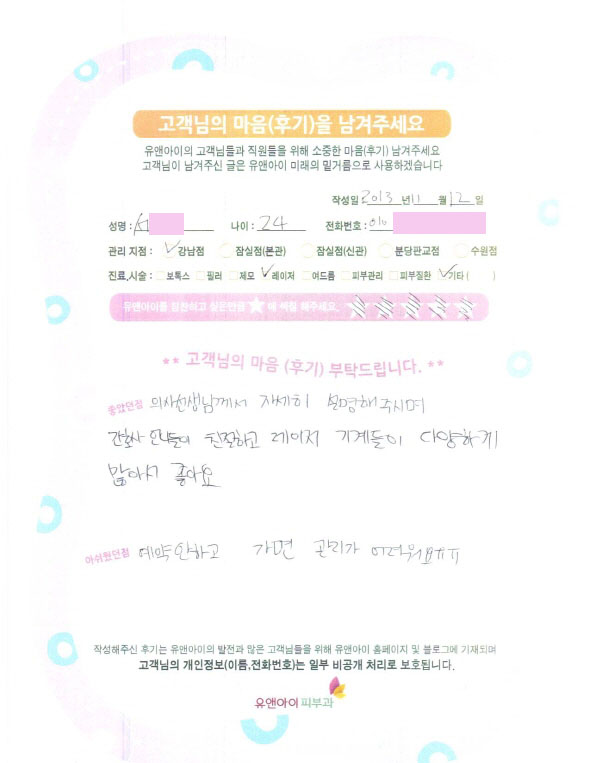 고객님의 마음(후기)을 남겨주세요
유앤아이의 고객님들과 직원들을 위해 소중한 마음(후기) 남겨주세요
고객님이 남겨주신 글은 유앤아이 미래의 밑거름으로 사용하겠습니다
작성일 : 2013 년 11 월 12 일
성명 : 서 나이 : 24 전화번호 : 010
관리 지점 : 강남점 잠실점(본관) 잠실점(신관) 분당판교점 수원점
진료,시술 : 보톡스 필러 제모 레이저 여드름 피부관리 피부질환 기타 ( )
유앤아이를 칭찬하고 싶은만큼 ★ 에 색칠 해주세요. ★ ★ ★ ★ ★
** 고객님의 마음 (후기) 부탁드립니다. **
좋았던점 의사선생님께서 자세히 설명해주시며
간호사 언니들이 친절하고 레이저 기계들이 다양하게
많아서 좋아요
아쉬웠던점 예약안하고 가면 관리가 어려워요ㅠㅠ
작성해주신 후기는 유앤아이의 발전과 많은 고객님들을 위해 유앤아이 홈페이지 및 블로그에 기재되며
고객님의 개인정보(이름,전화번호)는 일부 비공개 처리로 보호됩니다.
유앤아이 피부과